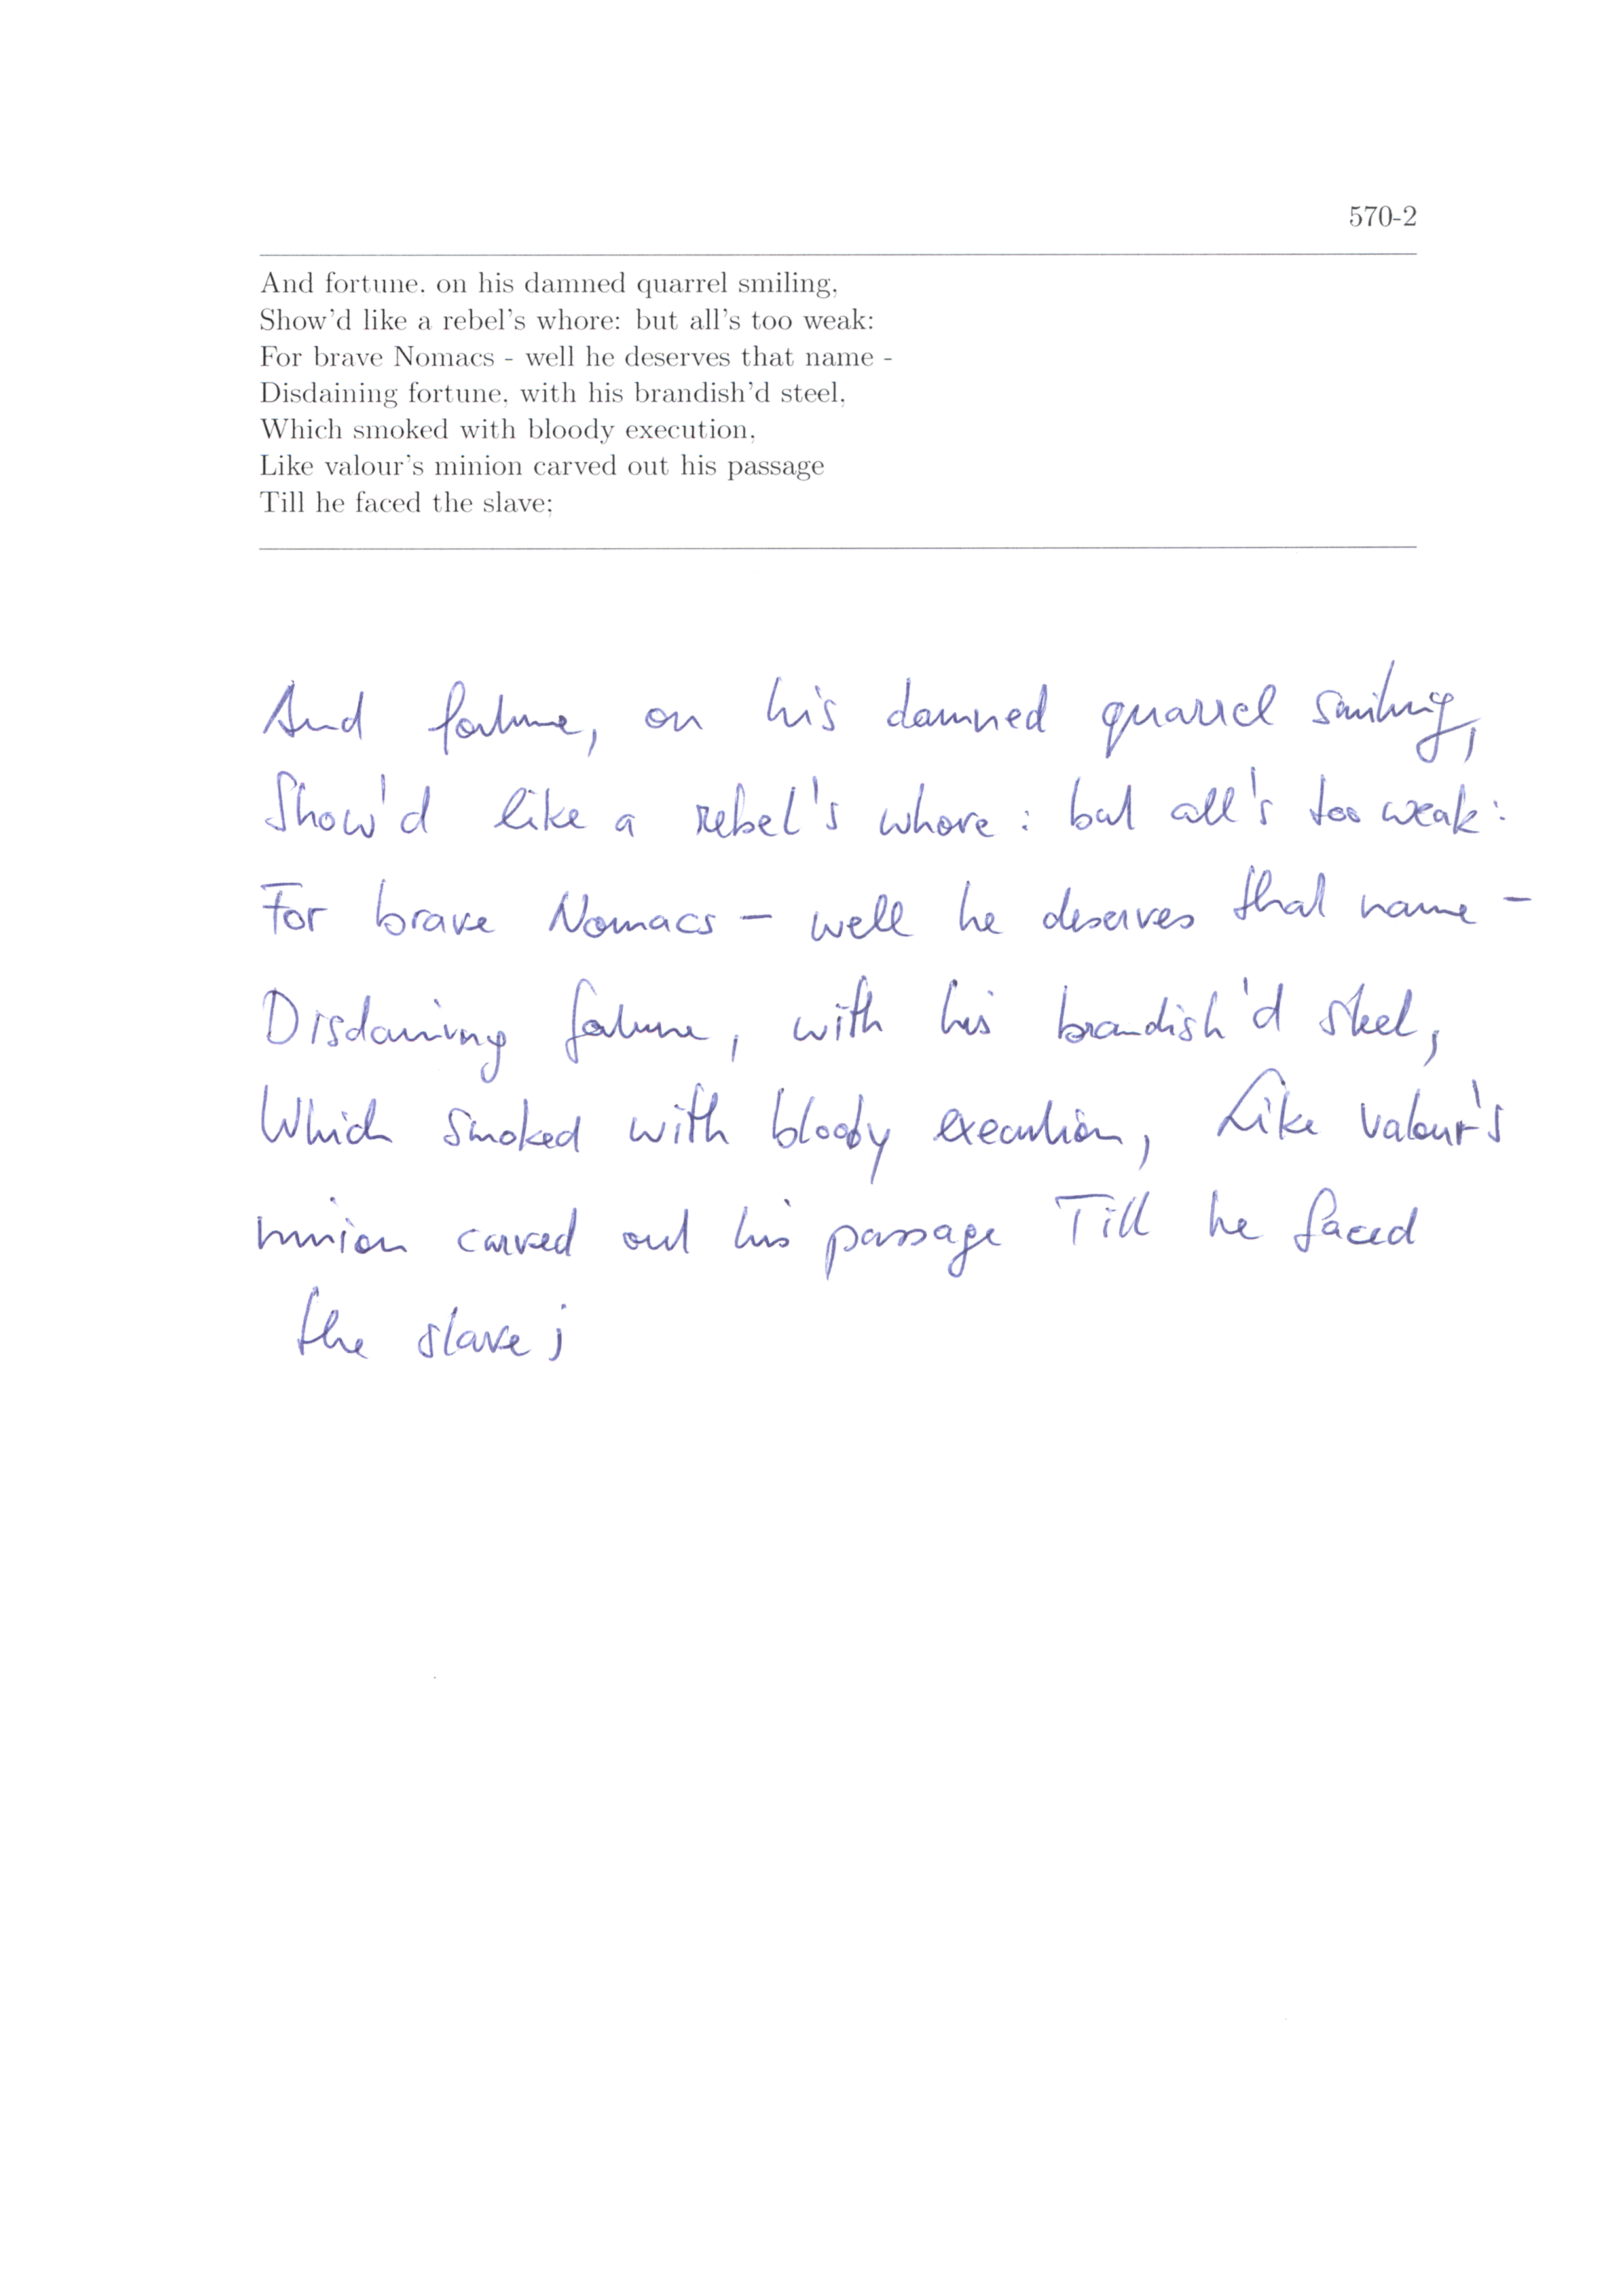 570-2
And fortune, on his damned quarrel smiling,
Show'd like a rebel's whore: but all's too weak:
For brave Nomacs - well he deserves that name -
Disdaining fortune, with his brandish'd steel,
Which smoked with bloody execution,
Like valour's minion carved out his passage
Till he faced the slave;
And fortune, on his damned quarrel smiling,
Show'd like a rebel's whore : but all's too weak:
For brave Nomacs - well he deserves that name -
Disdaining fortune, with his brandish'd steel,
Which smoked with bloody execution, Like valour's
minion carved out his passage Till he faced
the slave;